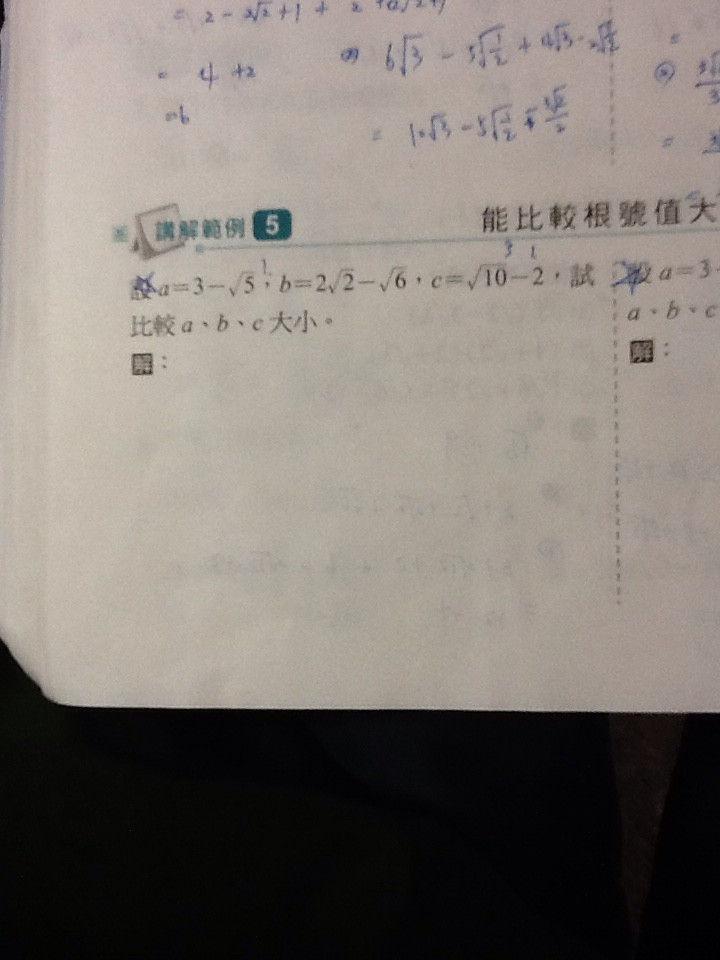 = 2 - 2√2 + 1 +
= 4 + 2
= 6
6√3 - 5√(1/2) + 4√3 -
=
講解範例 5
能比較根號值大
設 a=3-√5,b=2√2-√6,c=√10-2,試
比較 a、b、c 大小。
解:
設 a=3-
a、b、c
解: